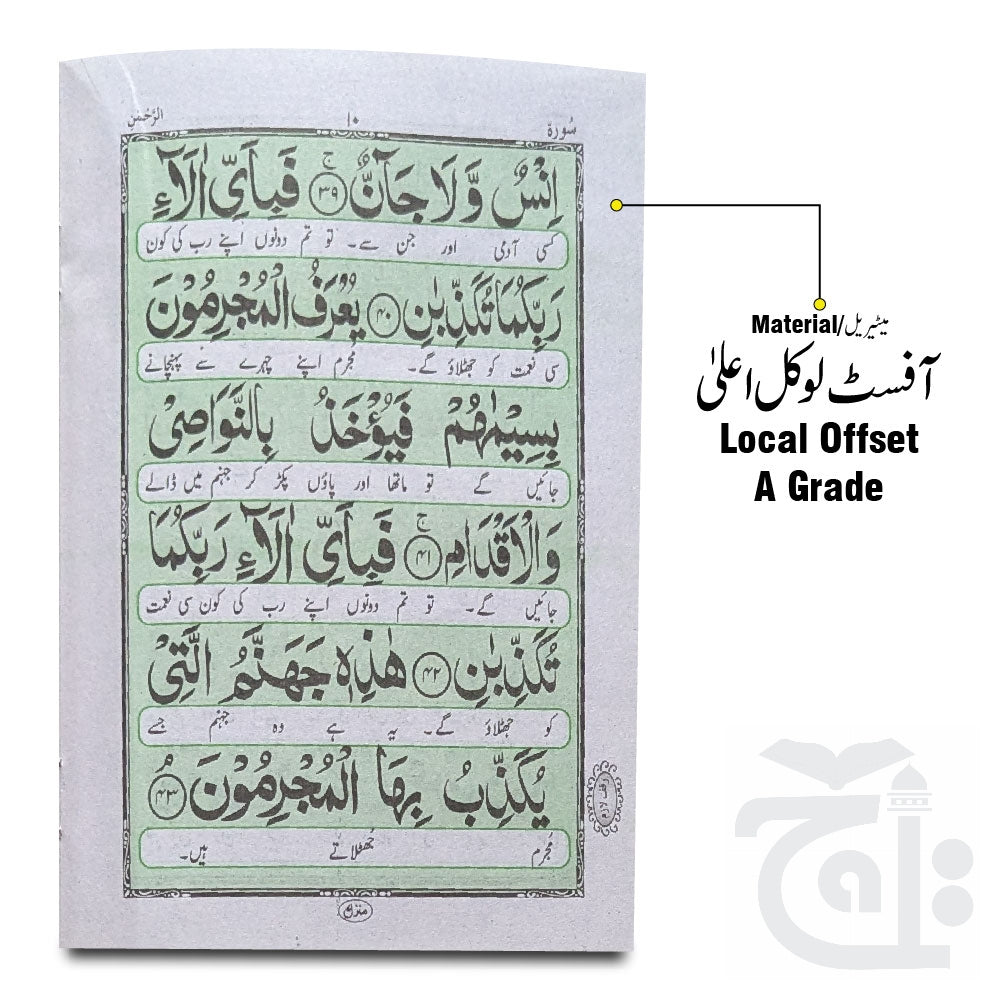 سُورة ١٠ الرَّحْمٰن
اِنْسٌ وَّ لَا جَآنٌّ ۚ ﴿۳۹﴾ فَبِاَيِّ اٰلَآءِ
کسی آدمی اور جن سے۔ تو تم دونوں اپنے رب کی کون
رَبِّكُمَا تُكَذِّبٰنِ ﴿۴۰﴾ يُعْرَفُ الْمُجْرِمُوْنَ
سی نعمت کو جھٹلاؤ گے۔ مُجرم اپنے چہرے سے پہنچانے
بِسِيْمٰهُمْ فَيُؤْخَذُ بِالنَّوَاصِيْ
جائیں گے تو ماتھا اور پاؤں پکڑ کر جہنم میں ڈالے
وَالْاَقْدَامِ ۚ ﴿۴۱﴾ فَبِاَيِّ اٰلَآءِ رَبِّكُمَا
جائیں گے۔ تو تم دونوں اپنے رب کی کون سی نعمت
تُكَذِّبٰنِ ﴿۴۲﴾ هٰذِهٖ جَهَنَّمُ الَّتِيْ
کو جھٹلاؤ گے۔ یہ ہے وہ جہنم جسے
يُكَذِّبُ بِهَا الْمُجْرِمُوْنَ ۘ ﴿۴۳﴾
مُجرم جُھٹلاتے ہیں۔
وقف لازم
Material/میٹیریل
آفسٹ لوکل اعلیٰ
Local Offset
A Grade